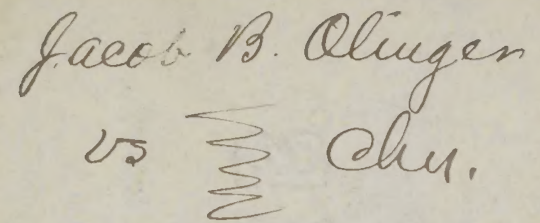 Jacob B. Olinger
vs Chy.